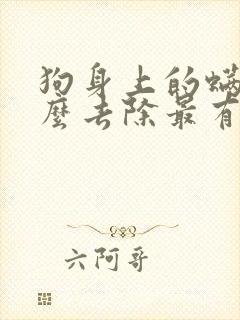 狗身上的螨
麼去除最有
六阿哥